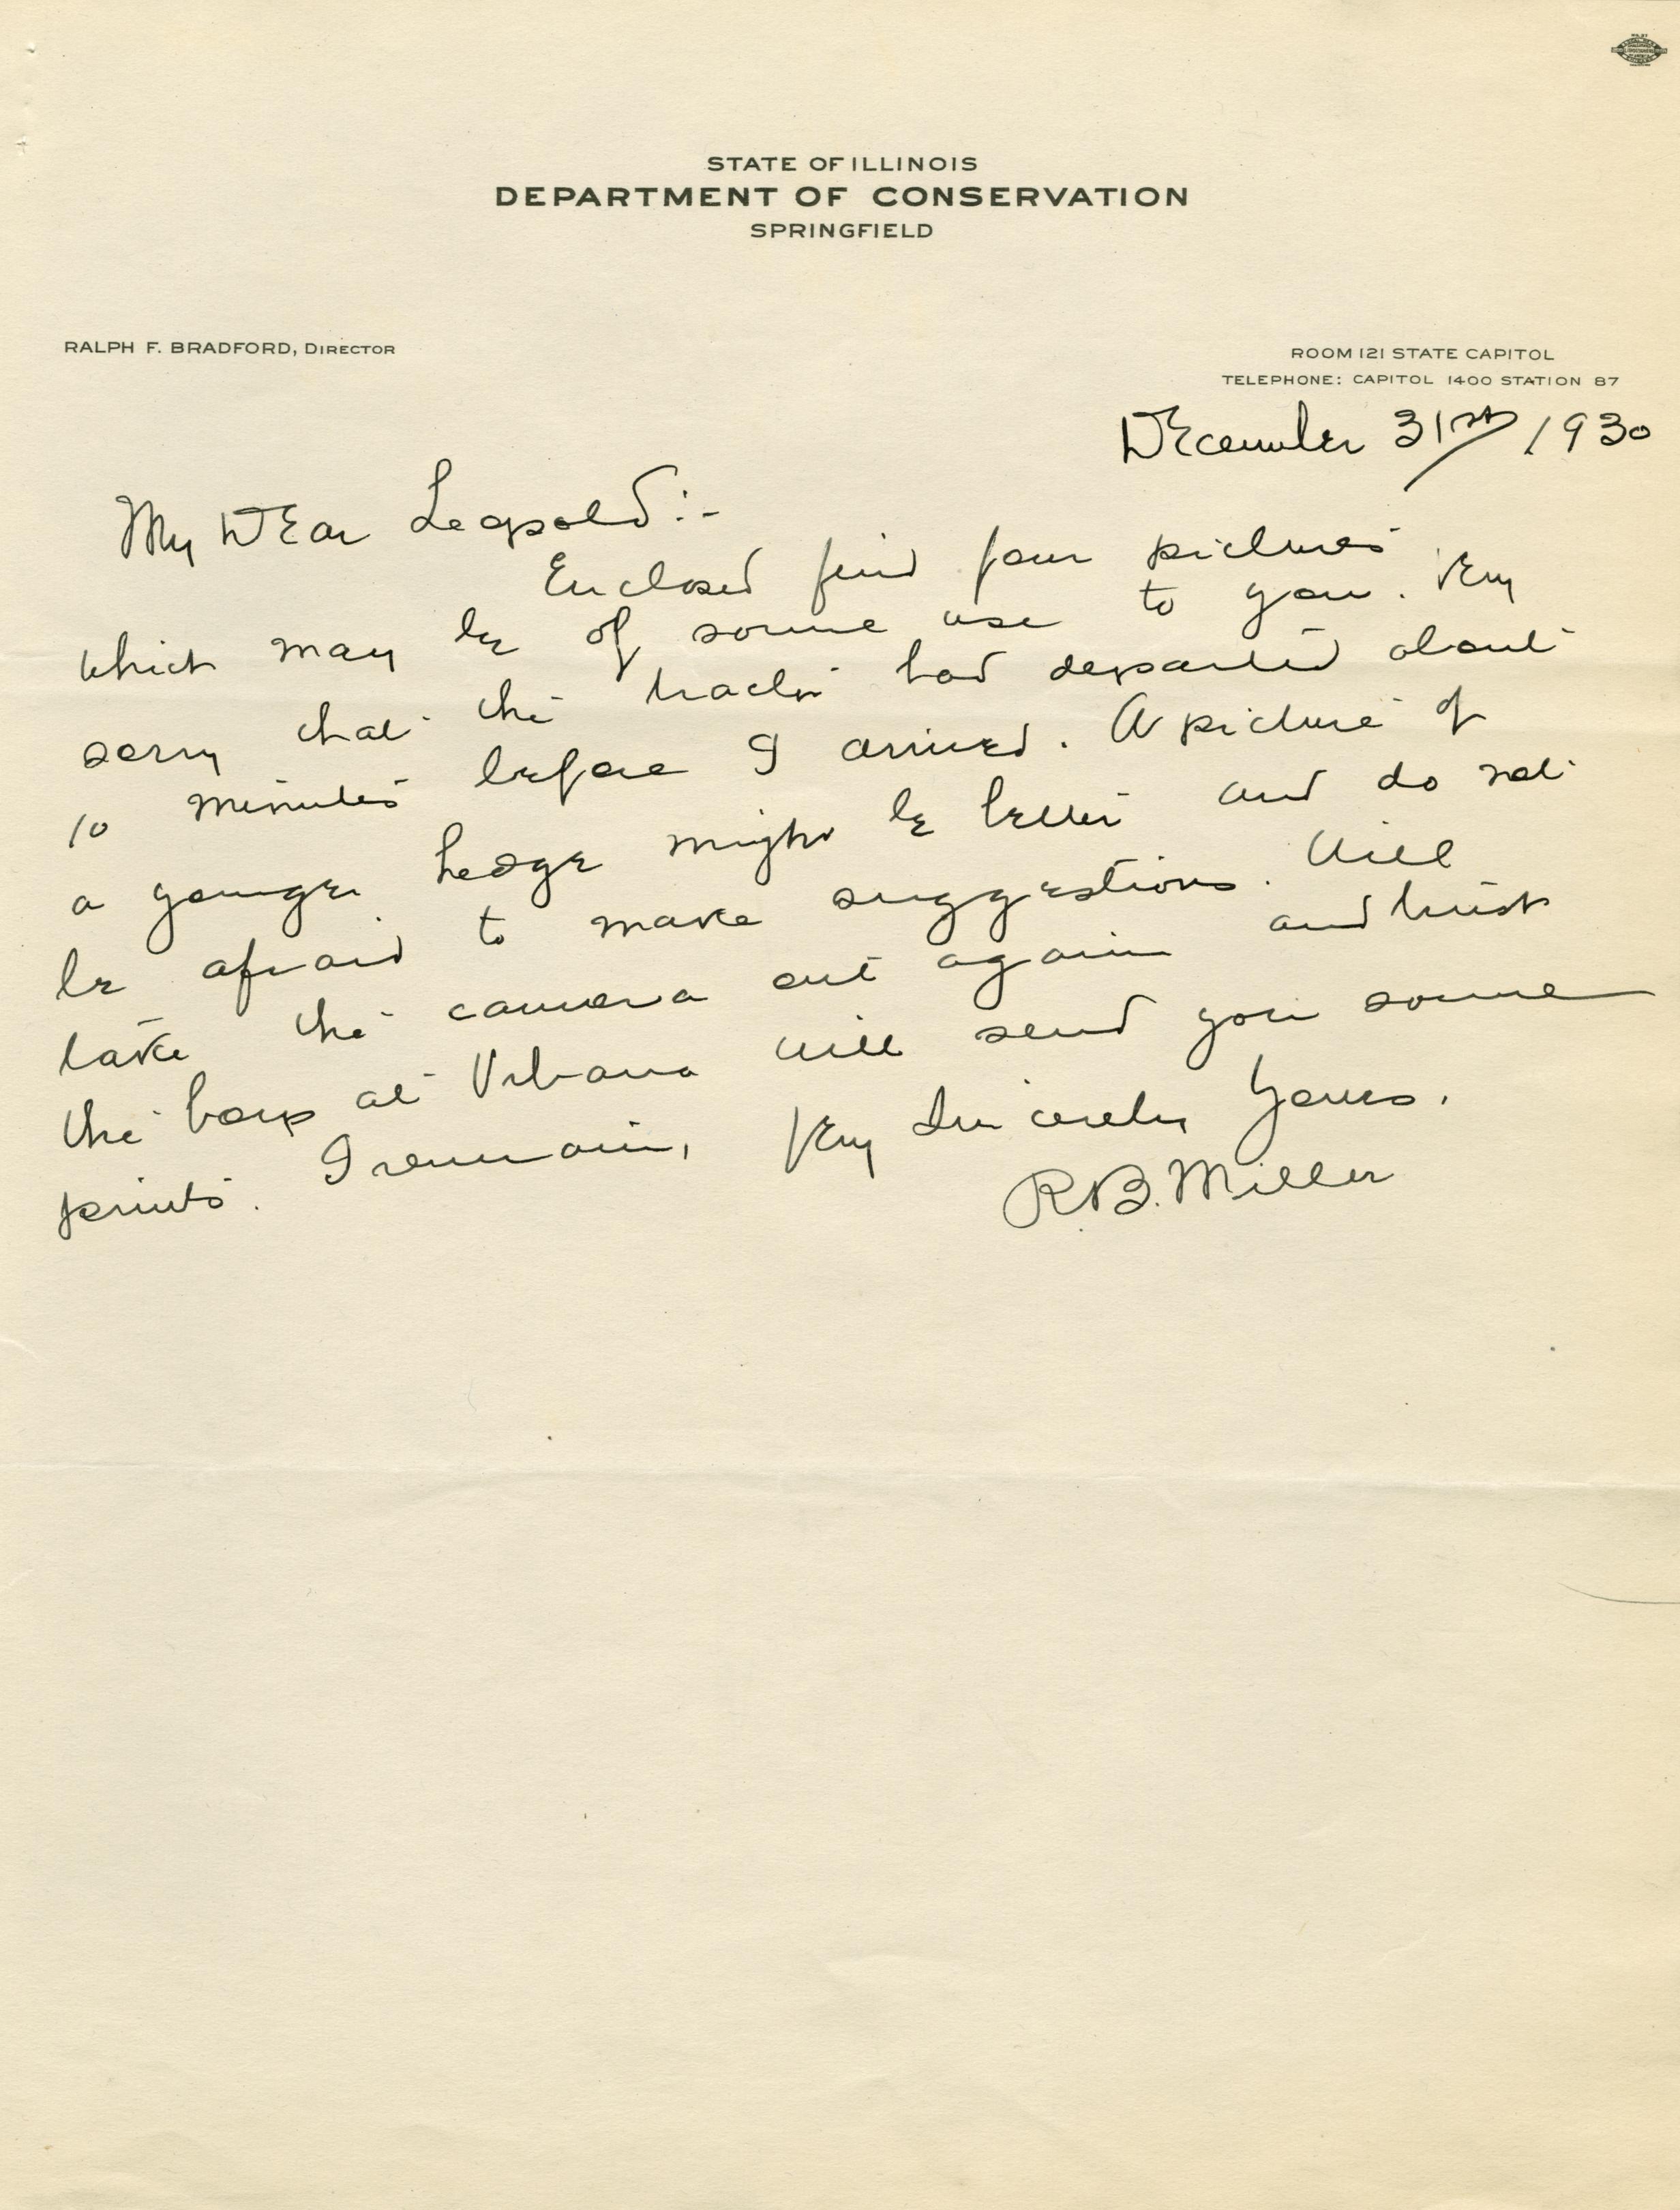 STATE OF ILLINOIS
DEPARTMENT OF CONSERVATION
SPRINGFIELD
RALPH F. BRADFORD, DIRECTOR
ROOM 121 STATE CAPITOL
TELEPHONE: CAPITOL 1400 STATION 87
December 31st, 1930
My Dear Leopold:-
Enclosed find four pictures
which may be of some use to you. Very
sorry that the tractor had departed about
10 minutes before I arrived. A picture of
a younger hedge might be better and do not
be afraid to make suggestions. Will
take the camera out again and trust
the boys at Urbana will send you some
prints. I remain, Very Sincerely Yours.
R.B. Miller